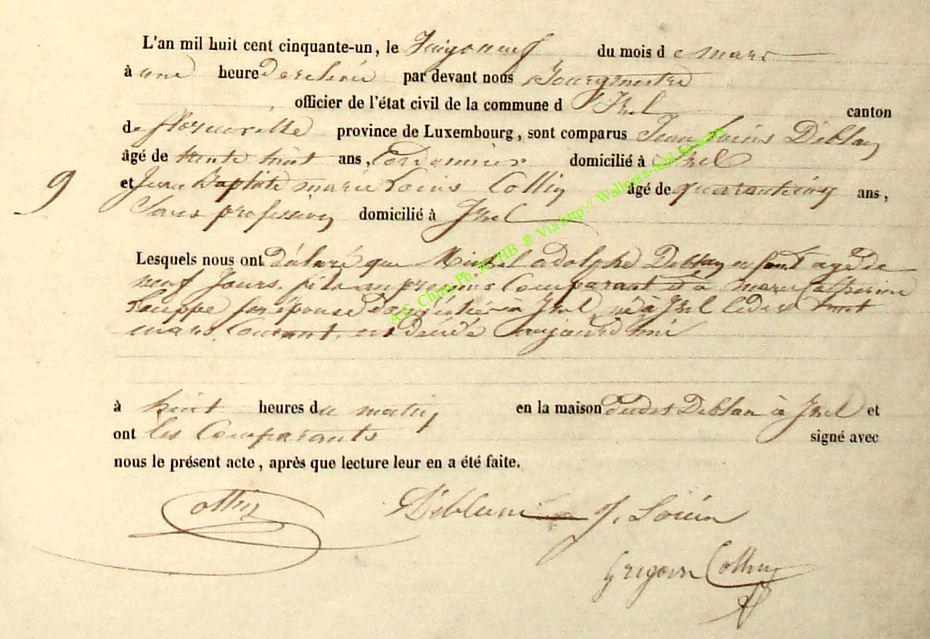 L'an mil huit cent cinquante-un, le vingt neuf du mois de mars
à une heure de relevée par devant nous Bourgmestre
officier de l'état civil de la commune d'Izel canton
de florenville province de Luxembourg, sont comparus Jean Louis Déblan
âgé de trente huit ans, Cordonnier domicilié à Izel
9
et Jean Baptiste marie Louis Collin âgé de quarante ans,
Sans profession domicilié à Izel
Lesquels nous ont déclaré que Michel adolphe Deblan enfant agé de
neuf Jours, fils au premier Comparant et à marie Catherine
son épouse à Izel, né à Izel le dix huit
mars courant, est décédé aujourd'hui
à huit heures du matin en la maison dudit Deblan à Izel et
ont les Comparants signé avec
nous le présent acte, après que lecture leur en a été faite.
Collin Déblan J.
Collin
A.E. Ph. ® Via http://